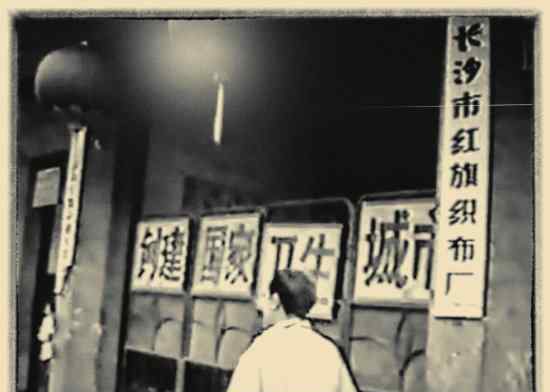 长沙市红旗织布厂
创建国家卫生城市